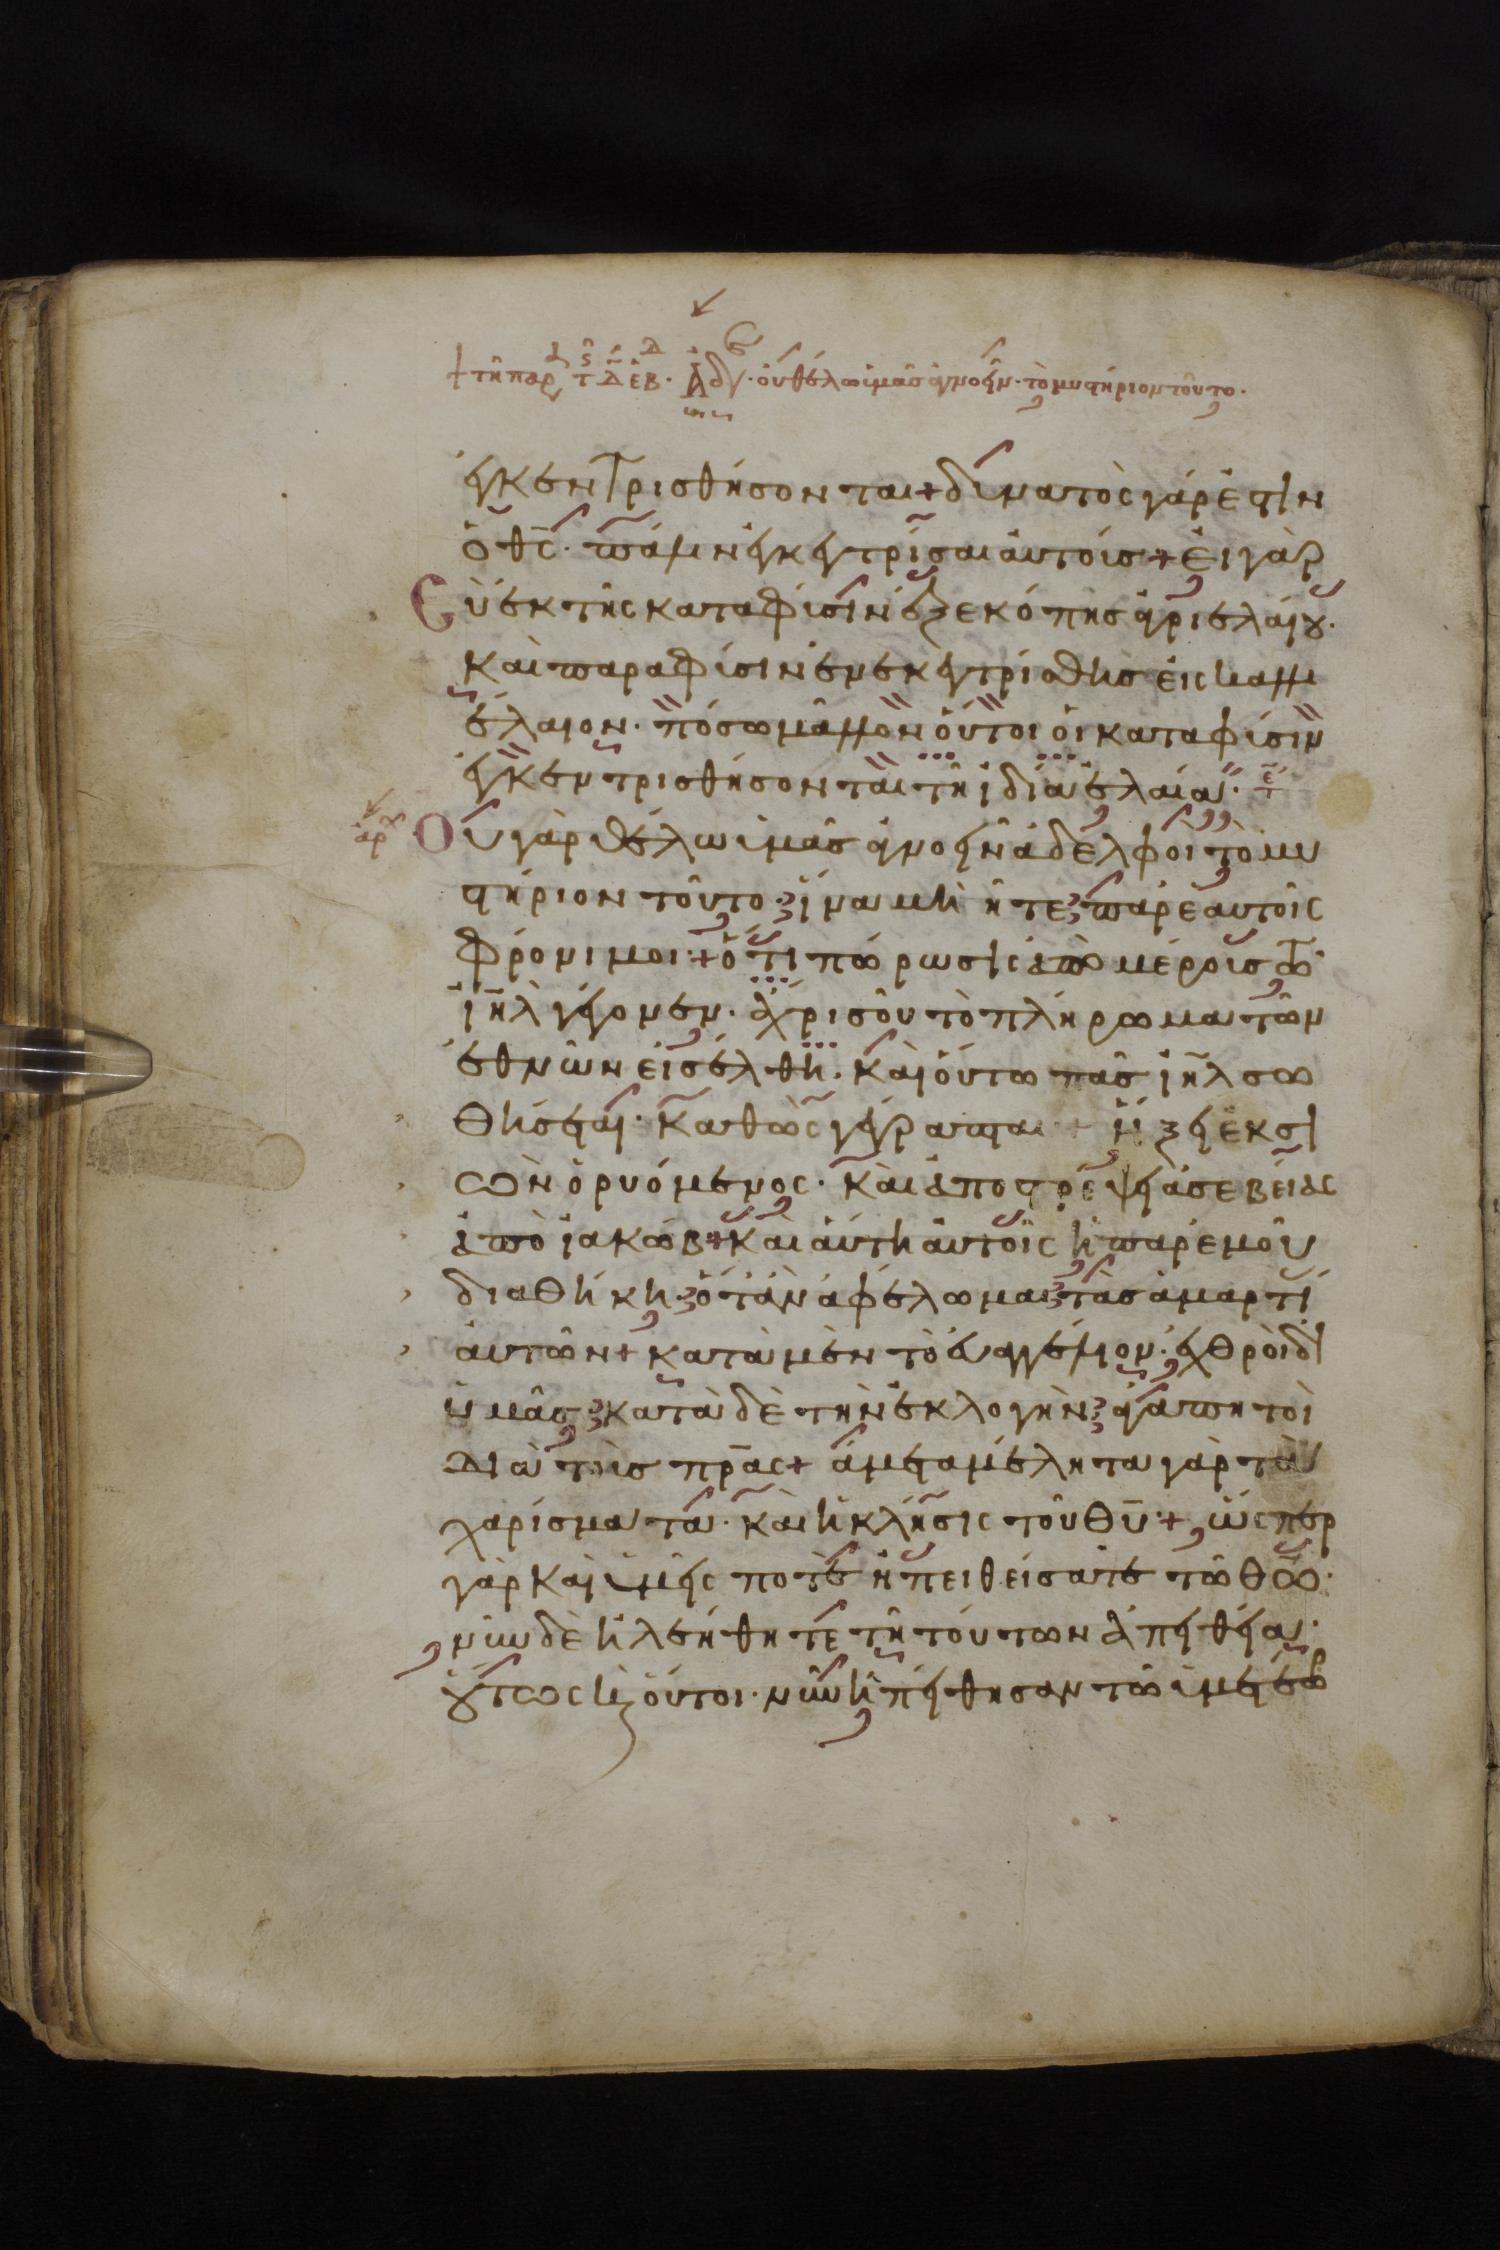 τῆ παρ τ δ ἑβ. Ἀδ. οὐ θέλω ὑμᾶς ἀγνοεῖν. τὸ μυστήριον τοῦτο.
ἐγκεντρισθήσονται + δυνατὸς γάρ ἐστιν
ὁ θς. πάλιν ἐγκεντρίσαι αὐτοίσ + εἰ γὰρ
σὺ ἐκ τῆς καταφύσιν ἐξεκόπησ ἀγριελαίου.
καὶ παραφύσιν ἐνεκεντρίσθησ εἰς καλλι
έλαιον. πόσω μᾶλλον οὗτοι οἱ καταφύσιν
ἐγκεντρισθήσονται τῆ ἰδία ἐλαία.
ἀρχ Οὐ γὰρ θέλω ὑμᾶσ ἀγνοεῖν ἀδελφοὶ τὸ μυ
στήριον τοῦτο. ἵνα μὴ ἦτε παρ ἑαυτοῖς
φρόνιμοι + ὅτι πώρωσις ἀπο μέρουσ τῶ
ιηλ γέγονεν. ἄχρισ οὗ τὸ πλήρωμα τῶν
ἐθνῶν εἰσέλθη. καὶ οὕτω πᾶσ ιηλ σω
θήσεται. καθὼς γέγραπται + ἥξει ἐκ σι
ὼν ὁ ρυόμενος. καὶ ἀποστρέψει ἀσεβείας
ἀπὸ ἰακώβ + καὶ αὕτη αὐτοῖς ἡ παρ ἐμοῦ
διαθήκη. ὅταν ἀφέλωμαι τὰσ ἁμαρτί
αὐτῶν + κατὰ μὲν τὸ εὐαγγέλιον. ἐχθροὶ δι
ὑμᾶσ. κατὰ δὲ τὴν ἐκλογὴν. ἀγαπητοὶ
διὰ τοὺσ πρας + ἀμεταμέλητα γὰρ τὰ
χαρίσματα. καὶ ἡ κλῆσις τοῦ θυ + ὥσπερ
γὰρ καὶ ὑμεῖς ποτὲ ἠπειθείσατε τῶ θω.
νῦν δὲ ἠλεήθητε τῆ τούτων ἀπειθεία.
οὕτως καὶ οὗτοι. νῦν ἠπείθησαν τῶ ὑμετέρω